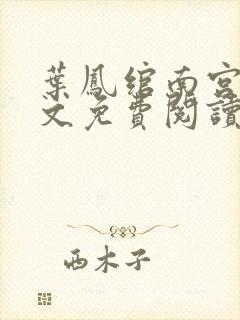 葉鳳綰南宮
文免費閱讀
西木子